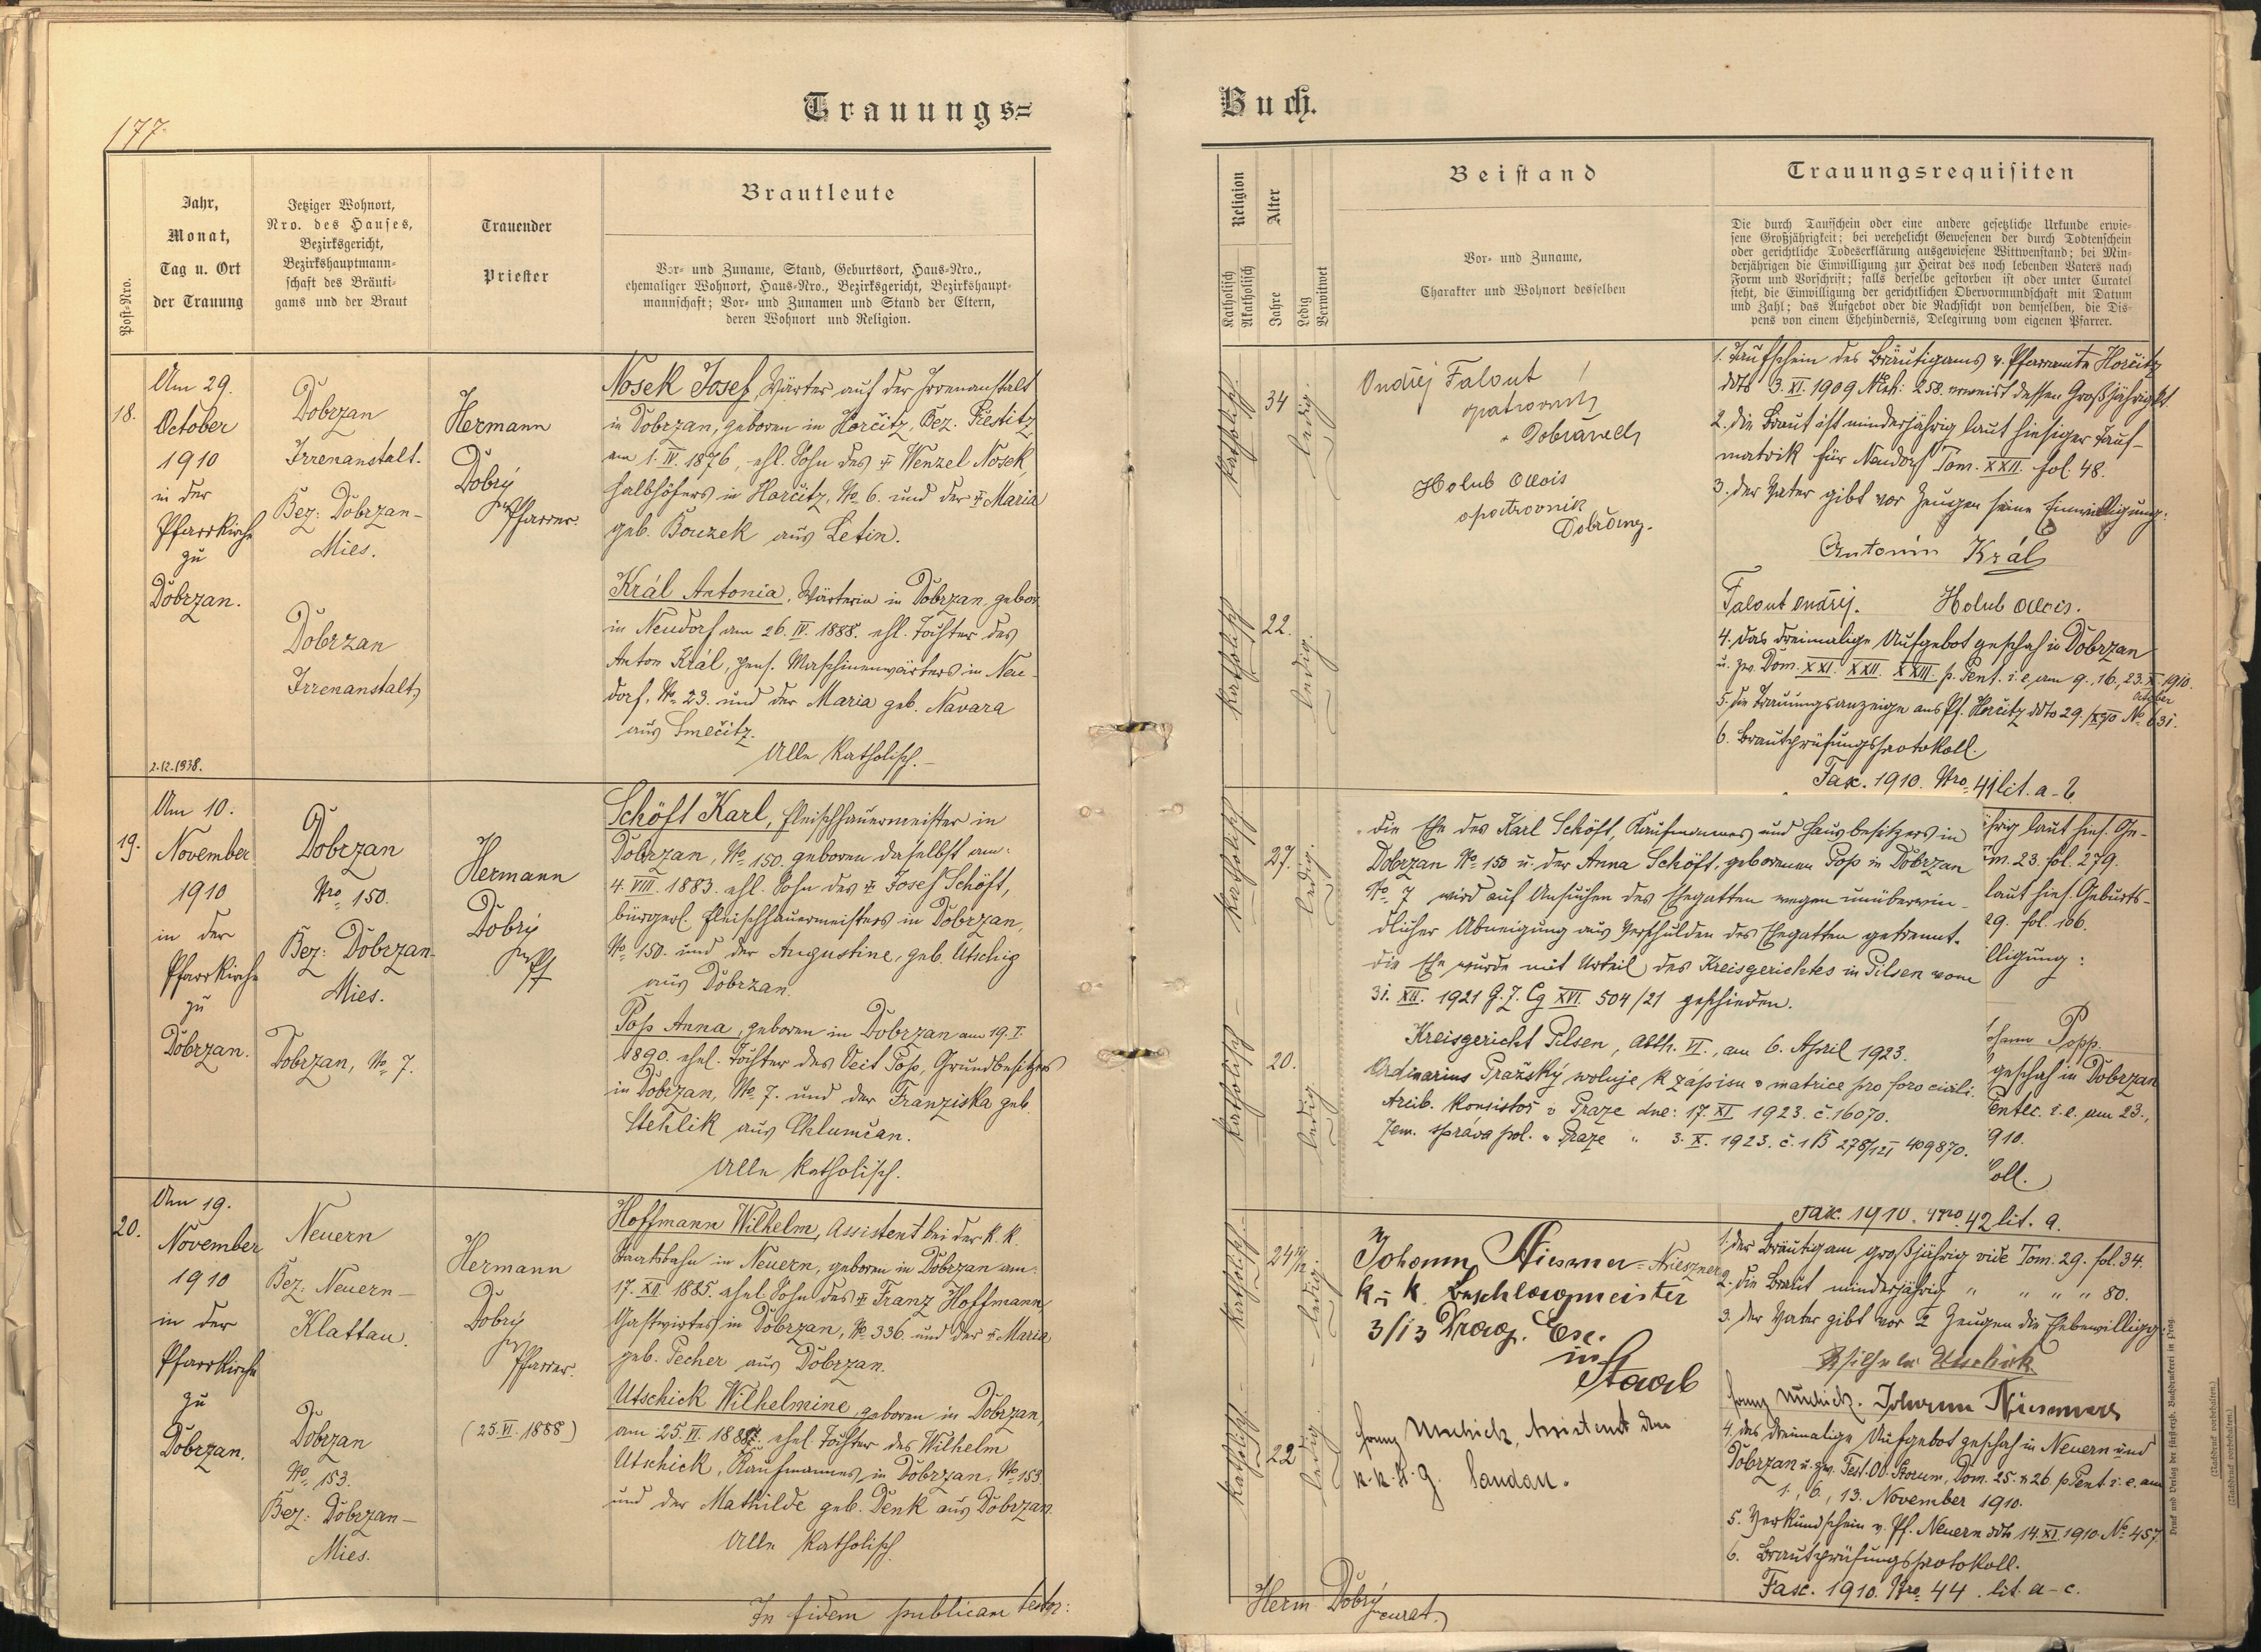 177
Trauungs=
Post-Nro.
Jahr,
Monat,
Tag u. Ort
der Trauung
Jetziger Wohnort,
Nro. des Hauses,
Bezirksgericht,
Bezirkshauptmann-
schaft des Bräuti-
gams und der Braut
Trauender
Priester
Brautleute
Vor- und Zuname, Stand, Geburtsort, Haus-Nro.,
ehemaliger Wohnort, Haus-Nro., Bezirksgericht, Bezirkshaupt-
mannschaft; Vor- und Zunamen und Stand der Eltern,
deren Wohnort und Religion.
18.
Am 29.
October
1910
in der
Pfarrkirche
zu
Dobrzan.
2.12.1938.
Dobrzan
Irrenanstalt.
Bez: Dobrzan-
Mies.
Dobrzan
Irrenanstalt
Hermann
Dobrý
Pfarrer.
Nosek Josef, Wärter auf der Irrenanstalt
in Dobrzan, geboren in Horčitz, Bez. Přestitz
am 1. IV. 1876, ehl. Sohn des † Wenzel Nosek,
Halbhöfers in Horčitz, No. 6. und der † Maria
geb. Bouzek aus Letin.
Král Antonia, Wärterin in Dobrzan, gebor.
in Neudorf am 26. IV. 1888. ehl. Tochter des
Anton Král, pens. Maschinenwärters in Neu-
dorf, No. 23. und der Maria geb. Navara
aus Smečitz.
Alle Katholisch.-
19.
Am 10.
November
1910
in der
Pfarrkirche
zu
Dobrzan.
Dobrzan
Nro. 150.
Bez: Dobrzan-
Mies.
Dobrzan, No. 7.
Hermann
Dobrý
Pf
Schöft Karl, Fleischhauermeister in
Dobrzan, No. 150. geboren daselbst am
4. VIII. 1883. ehl. Sohn des † Josef Schöft,
bürgerl. Fleischhauermeisters in Dobrzan,
No. 150. und der Augustine, geb. Utschig
aus Dobrzan.
Pop Anna, geboren in Dobrzan am 19. I.
1890. ehel. Tochter des Veit Pop, Grundbesitzers
in Dobrzan, No. 7. und der Franziska geb.
Stehlik aus Chlumčan.
Alle Katholisch.
20.
Am 19.
November
1910
in der
Pfarrkirche
zu
Dobrzan.
Neuern
Bez: Neuern-
Klattau.
Dobrzan
No. 153.
Bez: Dobrzan-
Mies.
Hermann
Dobrý
Pfarrer.
(25. VI. 1888)
Hoffmann Wilhelm, Assistent bei der k. k.
Staatsbahn in Neuern, geboren in Dobrzan am
17. XII 1885. ehel. Sohn des † Franz Hoffmann
Gastwirtes in Dobrzan, No. 336 und der † Maria
geb. Pecher aus Dobrzan.
Utschick Wilhelmine, geboren in Dobrzan,
am 25. VI. 1888. ehel. Tochter des Wilhelm
Utschick, Kaufmannes in Dobrzan, No. 153
und der Mathilde geb. Denk aus Dobrzan.
Alle Katholisch
In fidem publicam testor:
Buch.
Religion
Katholisch
Akatholisch
Alter
Jahre
Ledig
Verwitwet
Beistand
Vor- und Zuname,
Charakter und Wohnort desselben
Trauungsrequisiten
Die durch Taufschein oder eine andere gesetzliche Urkunde erwie-
sene Großjährigkeit; bei verehelicht Gewesenen der durch Todtenschein
oder gerichtliche Todeserklärung ausgewiesene Wittwenstand; bei Min-
derjährigen die Einwilligung zur Heirat des noch lebenden Vaters nach
Form und Vorschrift; falls derselbe gestorben ist oder unter Curatel
steht, die Einwilligung der gerichtlichen Obervormundschaft mit Datum
und Zahl; das Aufgebot oder die Nachsicht von demselben, die Dis-
pens von einem Ehehindernis, Delegirung vom eigenen Pfarrer.
Katholisch
34
ledig.
Ondřej Falout
Holub Alois
opatrovník
Katholisch
22.
ledig.
1. Taufschein des Bräutigams v. Pfarramte Horčitz
ddto 3. XI. 1909 erweist dessen Großjährigkt.
2. Die Braut ist minderjährig laut hiesiger Tauf-
matrik für Neudorf Tom. XXII. fol. 48.
3. Der Vater gibt vor Zeugen seine Einwilligung:
Antonín Král
Falout Ondřej. Holub Alois.
4. Das dreimalige Aufgebot geschah in Dobrzan
u. zw. Dom. XXI. XXII. XXIII. p. Pent. i. e. am 9., 16., 23. X. 1910.
October
5. Die Trauungsanzeige aus Pf. Horčitz ddto 29./X 910 No. 631.
6. Brautprüfungsprotokoll.
Fasc. 1910. Nro. 41 lit. a-b
Katholisch
27.
ledig.
Katholisch
20.
ledig.
Die Ehe des Karl Schöft, Kaufmannes und Hausbesitzers in
Dobrzan No. 150 u. der Anna Schöft, geborenen Pop in Dobrzan
No. 7 wird auf Ansuchen des Ehegatten wegen unüberwin-
dlicher Abneigung aus Verschulden des Ehegatten getrennt.
Die Ehe wurde mit Urteil des Kreisgerichtes in Pilsen vom
31. XII. 1921 G. Z. Cg XVI. 504/21 geschieden.
Kreisgericht Pilsen, Abth. VI., am 6. April 1923.
Ordinarius Pražský svoluje k zápisu v matrice pro foro civili.
Arcib. Konsistoř v Praze dne: 17. XI. 1923. č. 16070.
Zem. správa pol. v Praze " 3. X. 1923. č. 1 B 278/121 409870.
ährig laut hies. Ge-
m. 23. fol. 279.
laut hies. Geburts-
29. fol. 106.
lligung:
ohann Popp.
geschah in Dobrzan
Pentec. i. e. am 23.,
910.
oll.
Fasc. 1910. Nro. 42 lit. a.
Katholisch
24
ledig.
Katholisch
22
ledig
Johann Niesner = Nieszner
k. u k. Beschlagmeister
3/13 Drag. Esc.
in
Staab
Franz Utschick, Assistent der
k. k. Landau.
1. Der Bräutigam großjährig vide Tom. 29. fol. 34.
2. Die Braut minderjährig " " " " 80.
3. Der Vater gibt vor 2 Zeugen die Ehebewilligg:
Wilhelm Utschick
Franz Utschick. Johann Niesner
4. Das dreimalige Aufgebot geschah in Neuern und
Dobrzan u. zw. Fest. OO. Storum, Dom. 25. u 26. p. Pent. i. e. am
1., 6., 13. November 1910.
5. Verkündschein v. Pf. Neuern ddto 14. XI. 1910. No. 457.
6. Brautprüfungsprotokoll.
Fasc. 1910. Nro. 44. lit. a-c.
Herm. Dobrý
curat.
Druck und Verlag der fürsterzb. Buchdruckerei in Prag.
(Nachdruck vorbehalten.)
(Nachdruck vorbehalten.)